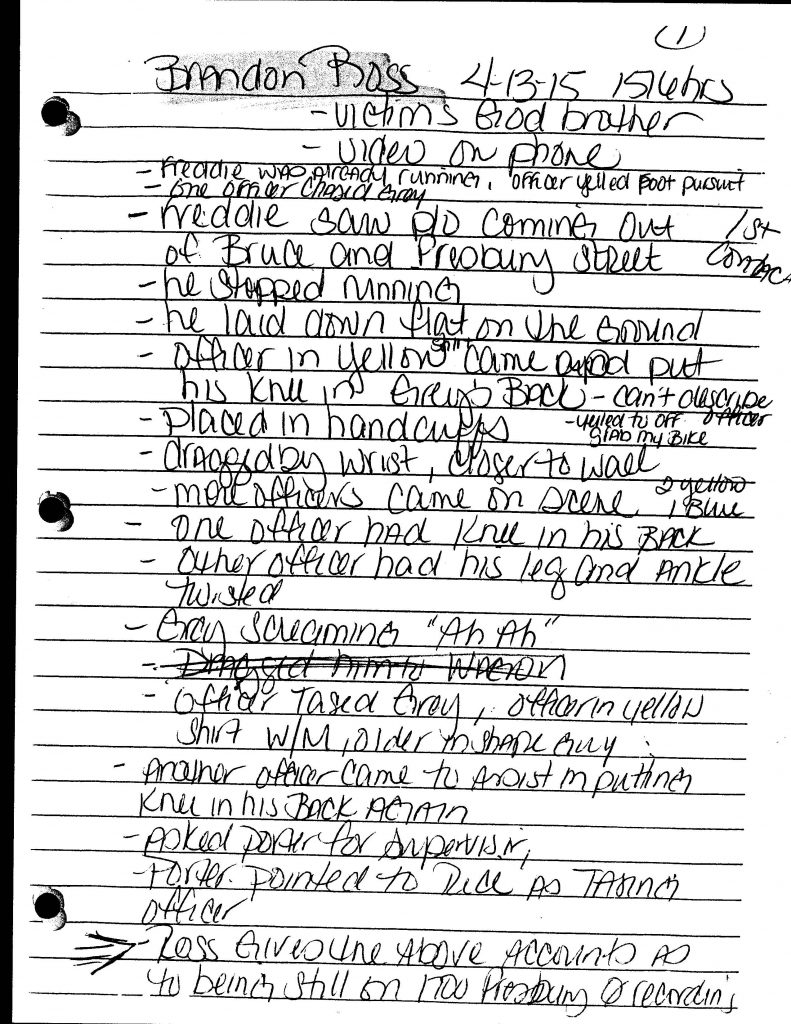 1
Brandon Ross 4-13-15 1516hrs
- victim's God brother
- video on phone
- Freddie was already running, officer yelled foot pursuit
- one officer chased Gray
- Freddie saw p/o coming out 1st
of Bruce and Presbury Street contact
- he stopped running
- he laid down flat on the ground
- officer in yellow "sh" came and put
his knee in Grey's Back - can't describe officer
- placed in handcuffs - yelled to off. grab my Bike
- dragged by wrist, closer to wall
- more officers came on scene 2 yellow 1 Blue
- one officer had knee in his Back
- other officer had his leg and ankle
twisted
- Gray screaming "Ah Ah"
- Dragged him to wagon
- officer Tased Gray, officer in yellow
shirt W/M, older in shape guy
- another officer came to assist in putting
knee in his Back Again
- Asked porter for supervisor,
- Porter pointed to Rice as Tasing
officer
- Ross Gives the Above Accounts as
to being still on 1700 Presbury & recording